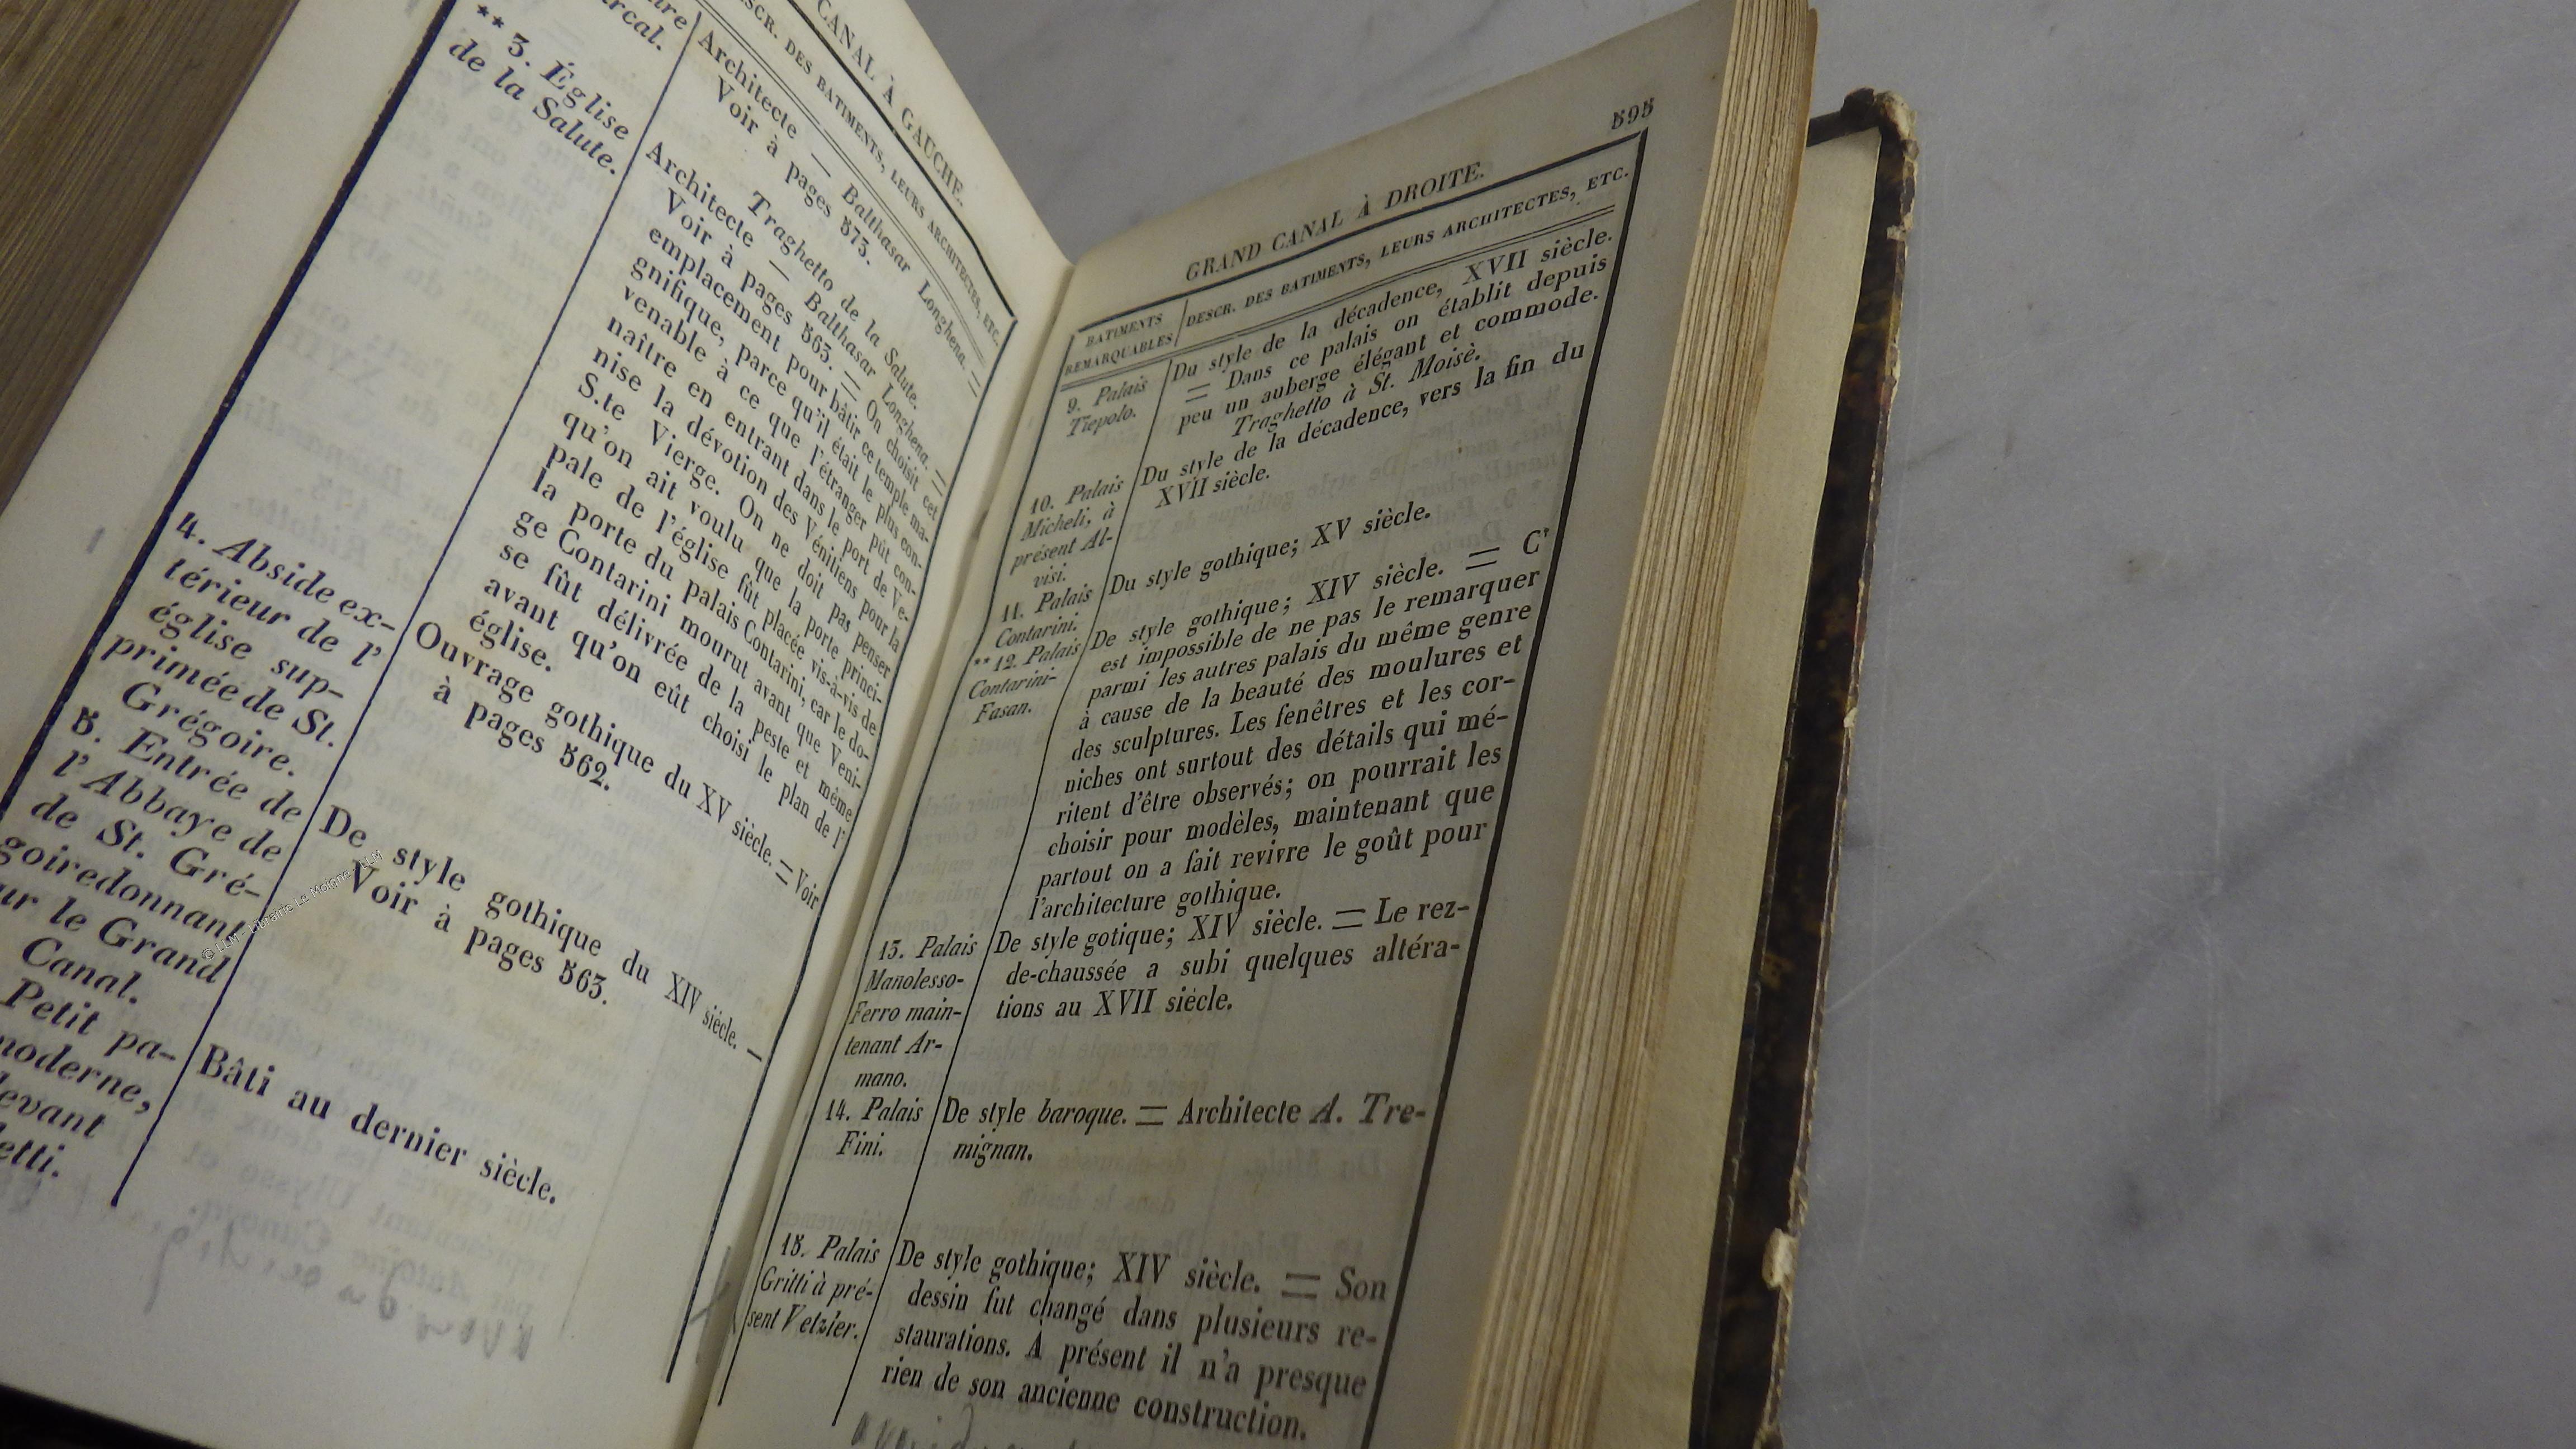 CANAL À GAUCHE.
DESCR. DES BATIMENTS, LEURS ARCHITECTES, ETC.
Architecte — Balthasar Longhena. =
Voir à pages 573.
Traghetto de la Salute.
** 3. Église
de la Salute.
Architecte — Balthasar Longhena. =
Voir à pages 563. = On choisit cet
emplacement pour bâtir ce temple ma-
gnifique, parce qu'il était le plus con-
venable à ce que l'étranger pût con-
naître en entrant dans le port de Ve-
nise la dévotion des Vénitiens pour la
S.te Vierge. On ne doit pas penser
qu'on ait voulu que la porte princi-
pale de l'église fût placée vis-à-vis de
la porte du palais Contarini, car le do-
ge Contarini mourut avant que Veni-
se fût délivrée de la peste et même
avant qu'on eût choisi le plan de l'
église.
4. Abside ex-
térieur de l'
église sup-
primée de St.
Grégoire.
Ouvrage gothique du XV siècle. = Voir
à pages 562.
5. Entrée de
l'Abbaye de
de St. Gré-
goire donnant
le Grand
Canal.
De style gothique du XIV siécle. —
Voir à pages 563.
Petit pa-
Bâti au dernier siècle.
595
GRAND CANAL À DROITE.
BATIMENTS
REMARQUABLES
DESCR. DES BATIMENTS, LEURS ARCHITECTES, ETC.
9. Palais
Tiepolo.
Du style de la décadence, XVII siècle.
= Dans ce palais on établit depuis
peu un auberge élégant et commode.
Traghetto à St. Moisè.
10. Palais
Micheli, à
présent Al-
visi.
Du style de la décadence, vers la fin du
XVII siècle.
11. Palais
Contarini.
Du style gothique; XV siècle.
** 12. Palais
Contarini-
Fasan.
De style gothique; XIV siècle. = C'
est impossible de ne pas le remarquer
parmi les autres palais du même genre
à cause de la beauté des moulures et
des sculptures. Les fenêtres et les cor-
niches ont surtout des détails qui mé-
ritent d'être observés; on pourrait les
choisir pour modèles, maintenant que
partout on a fait revivre le goût pour
l'architecture gothique.
13. Palais
Manolesso-
Ferro main-
tenant Ar-
mano.
De style gotique; XIV siècle. = Le rez-
de-chaussée a subi quelques altéra-
tions au XVII siécle.
14. Palais
Fini.
De style baroque. = Architecte A. Tre-
mignan.
15. Palais
Gritti à pré-
sent Vetzier.
De style gothique; XIV siècle. = Son
dessin fut changé dans plusieurs re-
staurations. À présent il n'a presque
rien de son ancienne construction.
© LLM - Librairie Le Moigne LLM